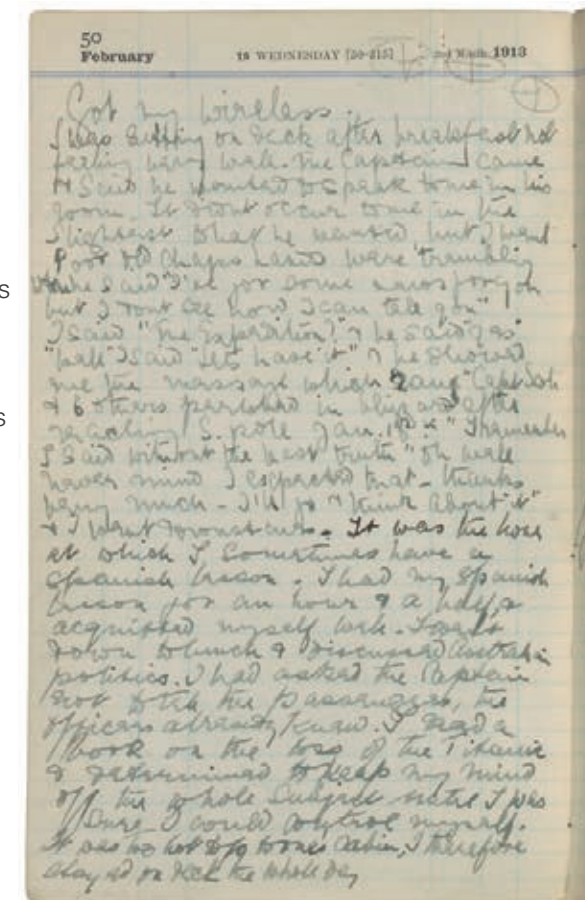 50
February
19 WEDNESDAY [50-315]
1913
Got my wireless.
I was sitting on deck after breakfast not
feeling very well. The Captain came
& said he wanted to speak to me in his
room. It didnt occur to me in the
slightest what he wanted but I went
Poor old chaps hands were trembling
when he said "I've got some news for you
but I dont see how I can tell you"
I said "The Expedition?" & he said "yes"
"Well" I said "Lets have it" & he showed
me the message which rang "Capt Scott
& 6 others perished in blizzard after
reaching S. pole Jan. 18th" I remember
I said without the least truth "Oh well
never mind I expected that - thanks
very much - I'll go & think about it"
& I went downstairs. It was the hour
at which I sometimes have a
Spanish lesson. I had my Spanish
lesson for an hour & a half &
acquitted myself well. I went
down to lunch & discussed Australian
politics. I had asked the Captain
not to tell the passengers, the
officers already knew. I read a
book on the loss of the Titanic
& determined to keep my mind
off the whole subject until I was
sure I could control myself.
It was too hot to go to ones cabin, I therefore
stayed on deck the whole day